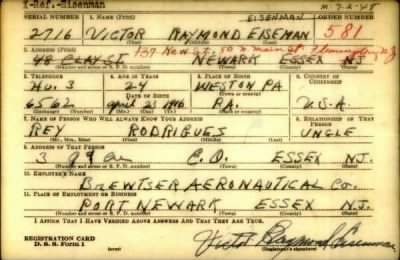 X-Ref. Eisenman M. 7-2-45
SERIAL NUMBER 1. NAME (Print) EISENMAN ORDER NUMBER
2716 VICTOR RAYMOND EISEMAN 581
(First) (Middle) (Last)
2. ADDRESS (Print) 139 New St. 50 N. main St. Flemington N.J
48 CLAY ST. NEWARK ESSEX N.J
(Number and street or R. F. D. number) (Town) (County) (State)
3. TELEPHONE 4. AGE IN YEARS 5. PLACE OF BIRTH 6. COUNTRY OF CITIZENSHIP
Hu. 3 24 WESTON PA
DATE OF BIRTH
6562 april 23 1916 PA. U.S.A.
(Exchange) (Number) (Mo.) (Day) (Yr.) (State or country)
7. NAME OF PERSON WHO WILL ALWAYS KNOW YOUR ADDRESS 8. RELATIONSHIP OF THAT PERSON
REY RODRIGUES UNGLE
(Mr., Mrs., Miss) (First) (Middle) (Last)
9. ADDRESS OF THAT PERSON
3 E.O. ESSEX N.J.
(Number and street or R. F. D. number) (Town) (County) (State)
10. EMPLOYER'S NAME
BREWTSER AERONAUTICAL CO.
11. PLACE OF EMPLOYMENT OR BUSINESS
PORT NEWARK ESSEX N.J.
(Number and street or R. F. D. number) (Town) (County) (State)
I AFFIRM THAT I HAVE VERIFIED ABOVE ANSWERS AND THAT THEY ARE TRUE.
REGISTRATION CARD
D. S. S. Form 1 Victor Raymond Eiseman
(Registrant's signature)